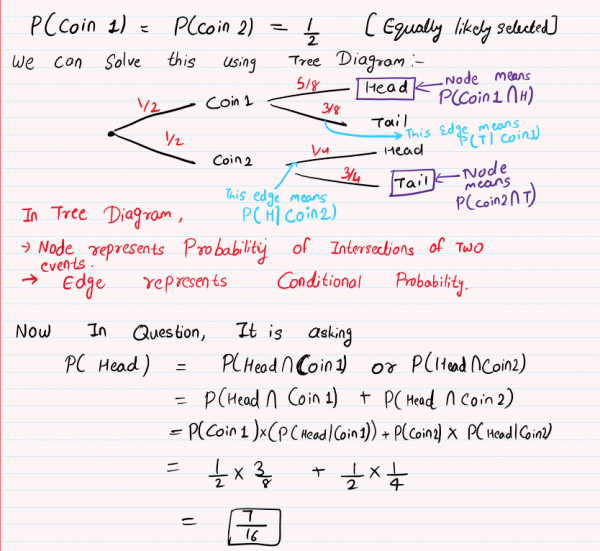 P(Coin 1) = P(Coin 2) = 1/2 [Equally likely selected]
We can Solve this using Tree Diagram :-
1/2 Coin 1 5/8 Head ← Node means
P(Coin1 ∩ H)
3/8 Tail
→ This Edge means
P(T| Coin1)
1/2 Coin2 1/4 Head
3/4 Tail ← Node
means
P(coin2 ∩ T)
This edge means
P(H| Coin2)
In Tree Diagram,
→ Node represents Probability of Intersections of Two
events.
→ Edge represents Conditional Probability.
Now In Question, It is asking
P( Head ) = P(Head ∩ Coin 1) or P(Head ∩ Coin2)
= P(Head ∩ Coin 1) + P( Head ∩ Coin 2)
= P(Coin 1)×(P(Head|Coin1)) + P(Coin2) × P(Head|Coin2)
= 1/2 × 3/8 + 1/2 × 1/4
= 7/16